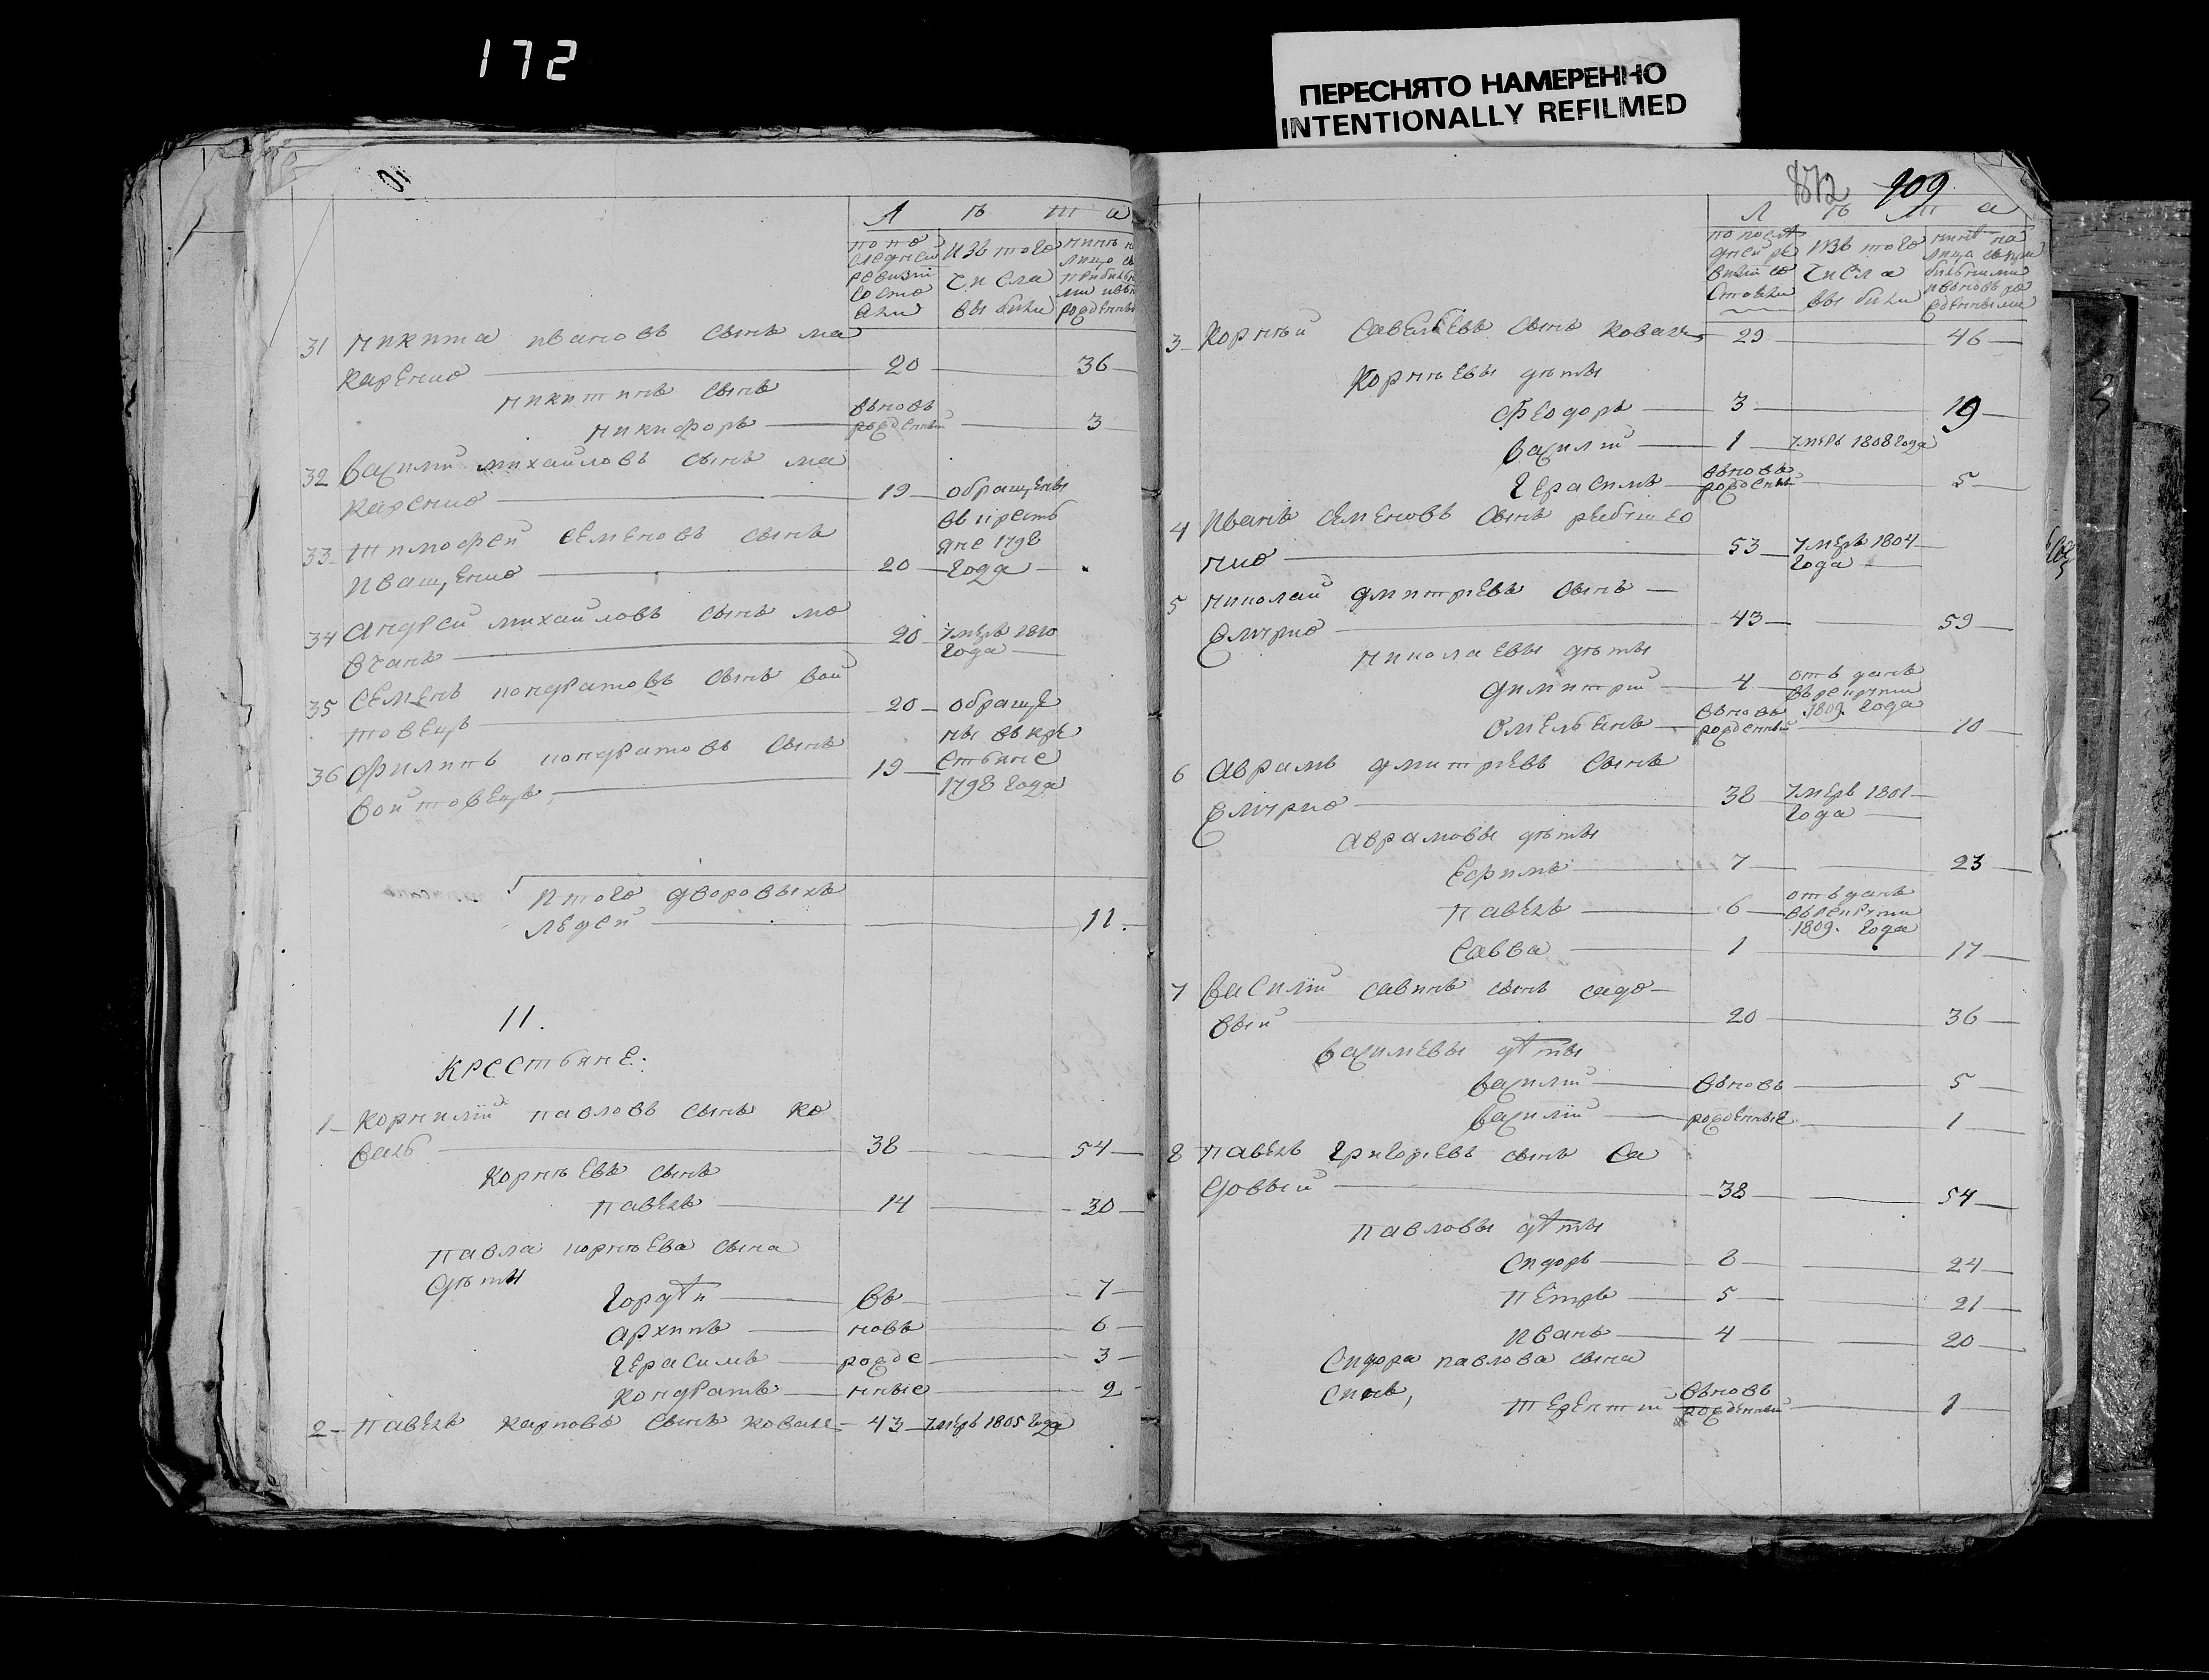 172
ПЕРЕСНЯТО НАМЕРЕННО
INTENTIONALLY REFILMED
Л ѣ т а
по по следней ревизіи состояли
изъ того числа выбыли
31 Никита ивановъ сынъ ма
каренко 20 36
никитинъ сынъ
никифоръ вновь рожденный 3
32 василий михайловъ сынъ ма
каренко 19 обращены
въ крестьяне 1798 года
33 тимофей семеновъ сынъ
иващенко 20
34 андрей михайловъ сынъ мо
вчанъ 20 умеръ 1810 года
35 семенъ кондратовъ сынъ вой
товецъ 20 обраще
ны въ кре
стьяне
1798 года
36 филипъ кондратовъ сынъ 19
войтовецъ
Итого дворовыхъ
людей 11.
11.
крестьяне.
1 корнилій павловъ сынъ ко
валь 38 54
корнѣевъ сынъ
павелъ 14 30
павла корнѣева сына
дѣти
гордѣи въ 7
архипъ новь 6
герасимъ рожде 3
кондратъ нные 2
2 павелъ карповъ сынъ коваль 43 умеръ 1805 года
872 109
Л ѣ т а
по последней ревизіи состояли
изъ того числа выбыли
ныне на лицо съ прибылыми и вновь рожденными
3 корнѣй савельевъ сынъ коваль 29 46
корнѣевы дѣти
феодоръ 3 19
василій 1 умеръ 1808 года
герасимъ вновь рожденный 5
4 иванъ семеновъ сынъ
53 умеръ 1804 года
5 николай дмитріевъ сынъ
жмурко 43 59
николаевы дѣти
димитрій 4 отъ данъ въ рекруты 1809. года
омельянъ вновь рожденный 10
6 аврамъ дмитріевъ сынъ
жмурко 38 умеръ 1801 года
аврамовы дѣти
ефимъ 7 23
павелъ 6 отъ данъ въ рекруты 1809. года
савва 1 17
7 василій савинъ сынъ садо
вый 20 36
василіевы дѣти
василій вновь 5
василій рожденные 1
8 павелъ григорьевъ сынъ са
довый 38 54
павловы дѣти
сидоръ 8 24
петръ 5 21
иванъ 4 20
сидора павлова сына
синъ, терентій вновь рожденный 1